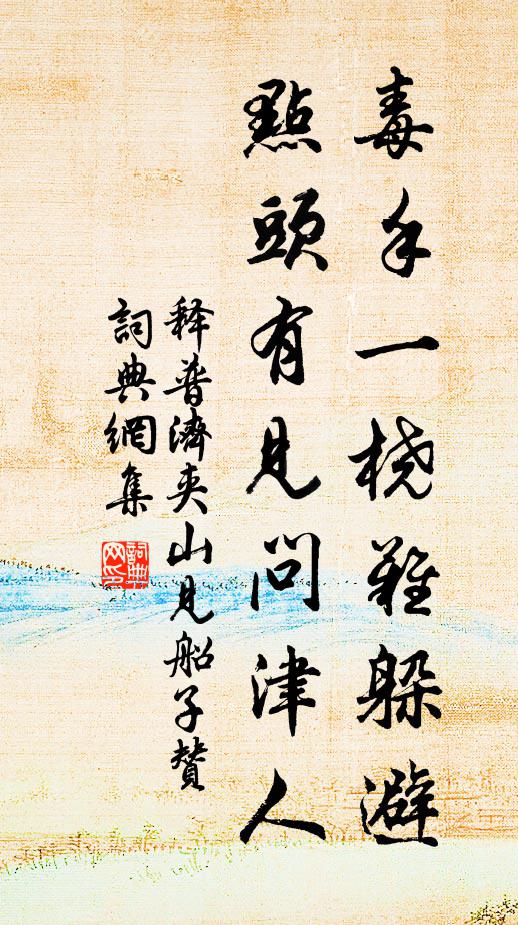 毒手一桡難躲避
點頭有見問津人
释普濟夾山見船子贊
詞典網集
詞典網印